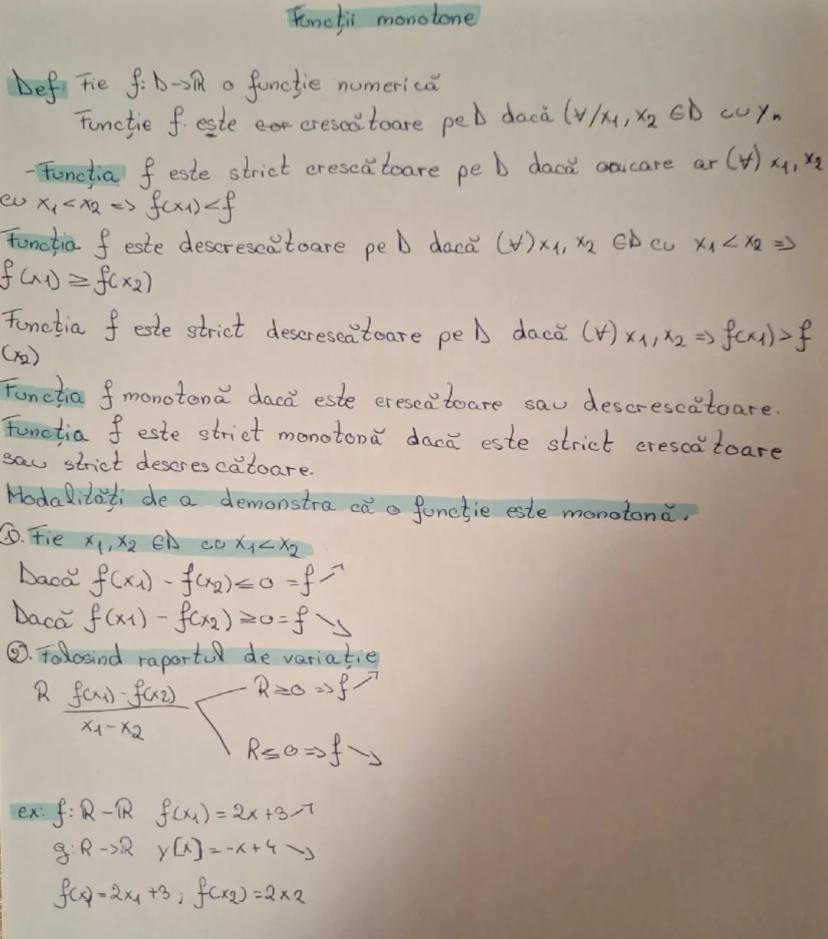 Funcții monotone
Def: Fie f: D→ℝ o funcție numerică
Funcție f. este crescătoare pe D dacă (∀/x1, x2 ∈D cu
-Funcția f este strict crescătoare pe D dacă oricare ar (∀) x1, x2
cu x1<x2 => f(x1)<f
Funcția f este descrescătoare pe D dacă (∀) x1, x2 ∈D cu x1<x2 =>
f(x1) ≥ f(x2)
Funcția f este strict descrescătoare pe D dacă (∀) x1, x2 => f(x1)>f
(x2)
Funcția f monotonă dacă este crescătoare sau descrescătoare.
Funcția f este strict monotonă dacă este strict crescătoare
sau strict descrescătoare.
Modalități de a demonstra că o funcție este monotonă.
①. Fie x1, x2 ∈D cu x1<x2
Dacă f(x1) - f(x2) ≤ 0 = f ↗
Dacă f(x1) - f(x2) ≥ 0 = f ↘
②. Folosind raportul de variație
R f(x1)-f(x2) R≥0 => f ↗
x1-x2
R≤0 => f ↘
ex: f: ℝ-ℝ f(x1) = 2x+3 ↗
g: ℝ→ℝ y[x] = -x+4 ↘
f(x)=2x1+3; f(x2)=2x2